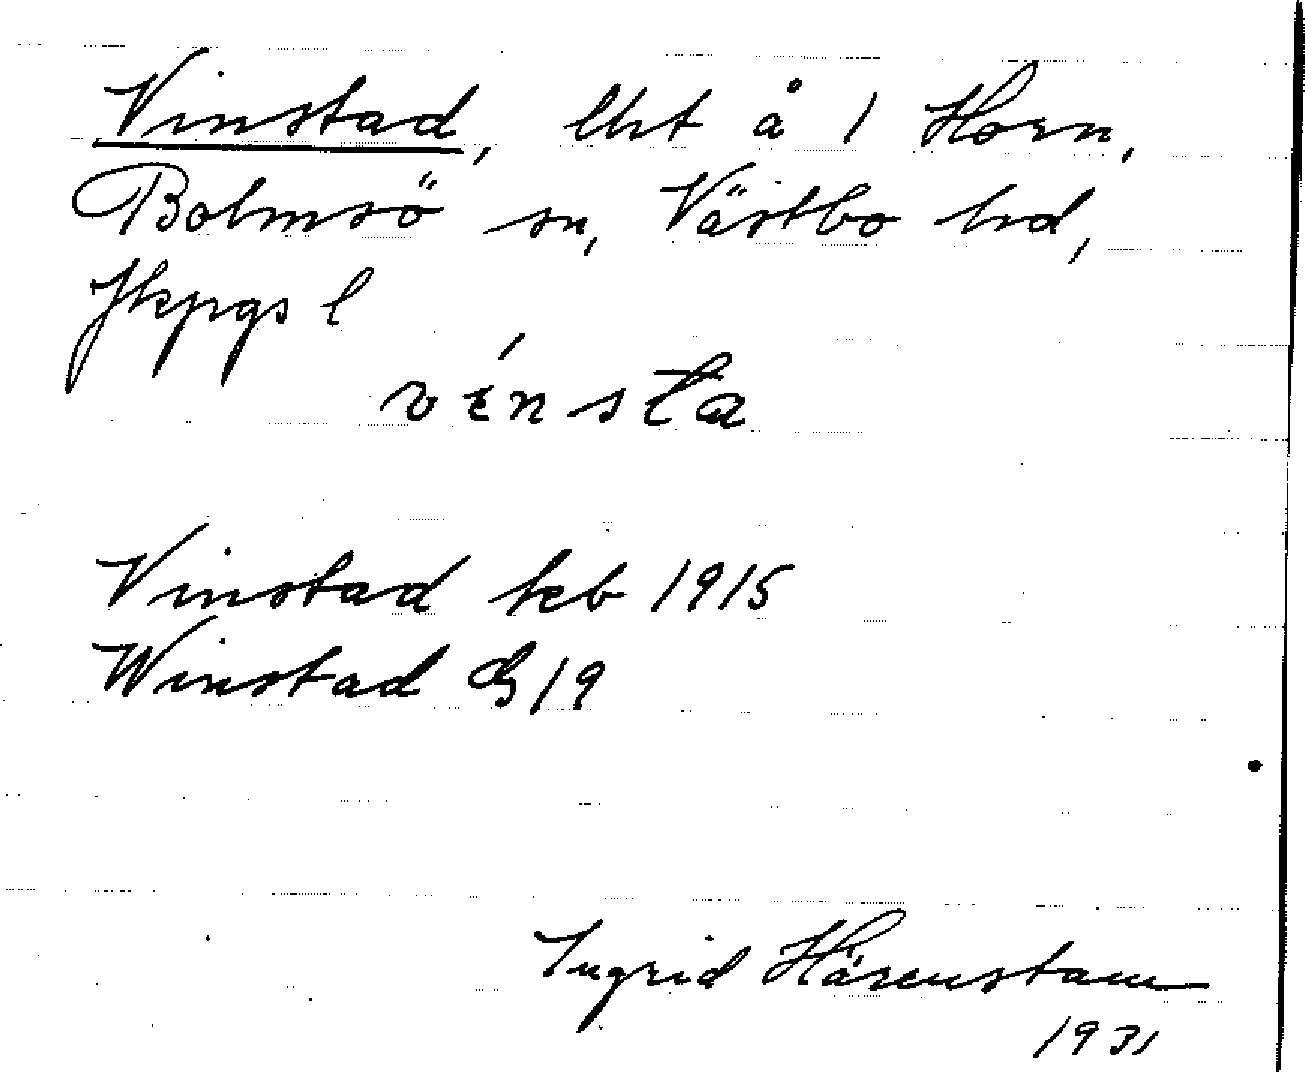 Vinstad, lht å 1 Horn,
Bolmsö sn, Västbo hd,
Jkpgs l
vénsta
Vinstad keb 1915
Winstad GS 19
Ingrid Härenstam
1931